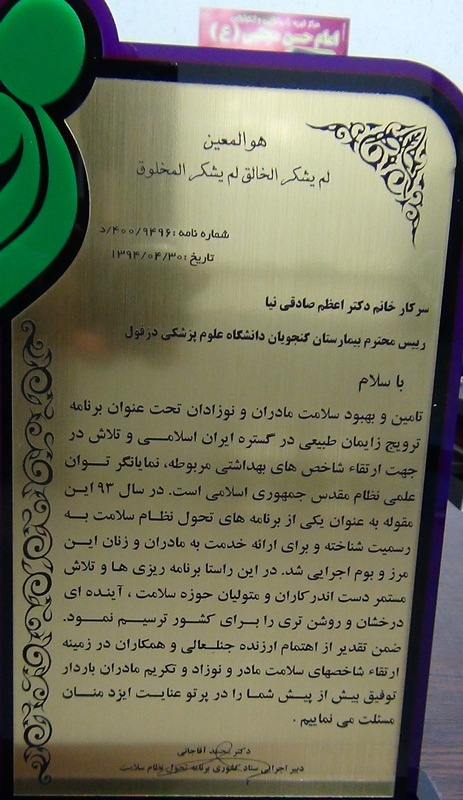 امام حسن مجتبی (ع)
هوالمعین
لم یشکر الخالق لم یشکر المخلوق
شماره نامه :۴۰۰/۹۴۹۶/د
تاریخ : ۱۳۹۴/۰۴/۳۰
سرکار خانم دکتر اعظم صادقی نیا
رییس محترم بیمارستان گنجویان دانشگاه علوم پزشکی دزفول
با سلام
تامین و بهبود سلامت مادران و نوزادان تحت عنوان برنامه
ترویج زایمان طبیعی در گستره ایران اسلامی و تلاش در
جهت ارتقاء شاخص های بهداشتی مربوطه، نمایانگر توان
علمی نظام مقدس جمهوری اسلامی است. در سال ۹۳ این
مقوله به عنوان یکی از برنامه های تحول نظام سلامت به
رسمیت شناخته و برای ارائه خدمت به مادران و زنان این
مرز و بوم اجرایی شد. در این راستا برنامه ریزی ها و تلاش
مستمر دست اندرکاران و متولیان حوزه سلامت ، آینده ای
درخشان و روشن تری را برای کشور ترسیم نمود.
ضمن تقدیر از اهتمام ارزنده جنلعالی و همکاران در زمینه
ارتقاء شاخصهای سلامت مادر و نوزاد و تکریم مادران باردار
توفیق بیش از پیش شما را در پرتو عنایت ایزد منان
مسئلت می نماییم .
دکتر محمد آقاجانی
دبیر اجرایی ستاد کشوری برنامه تحول نظام سلامت